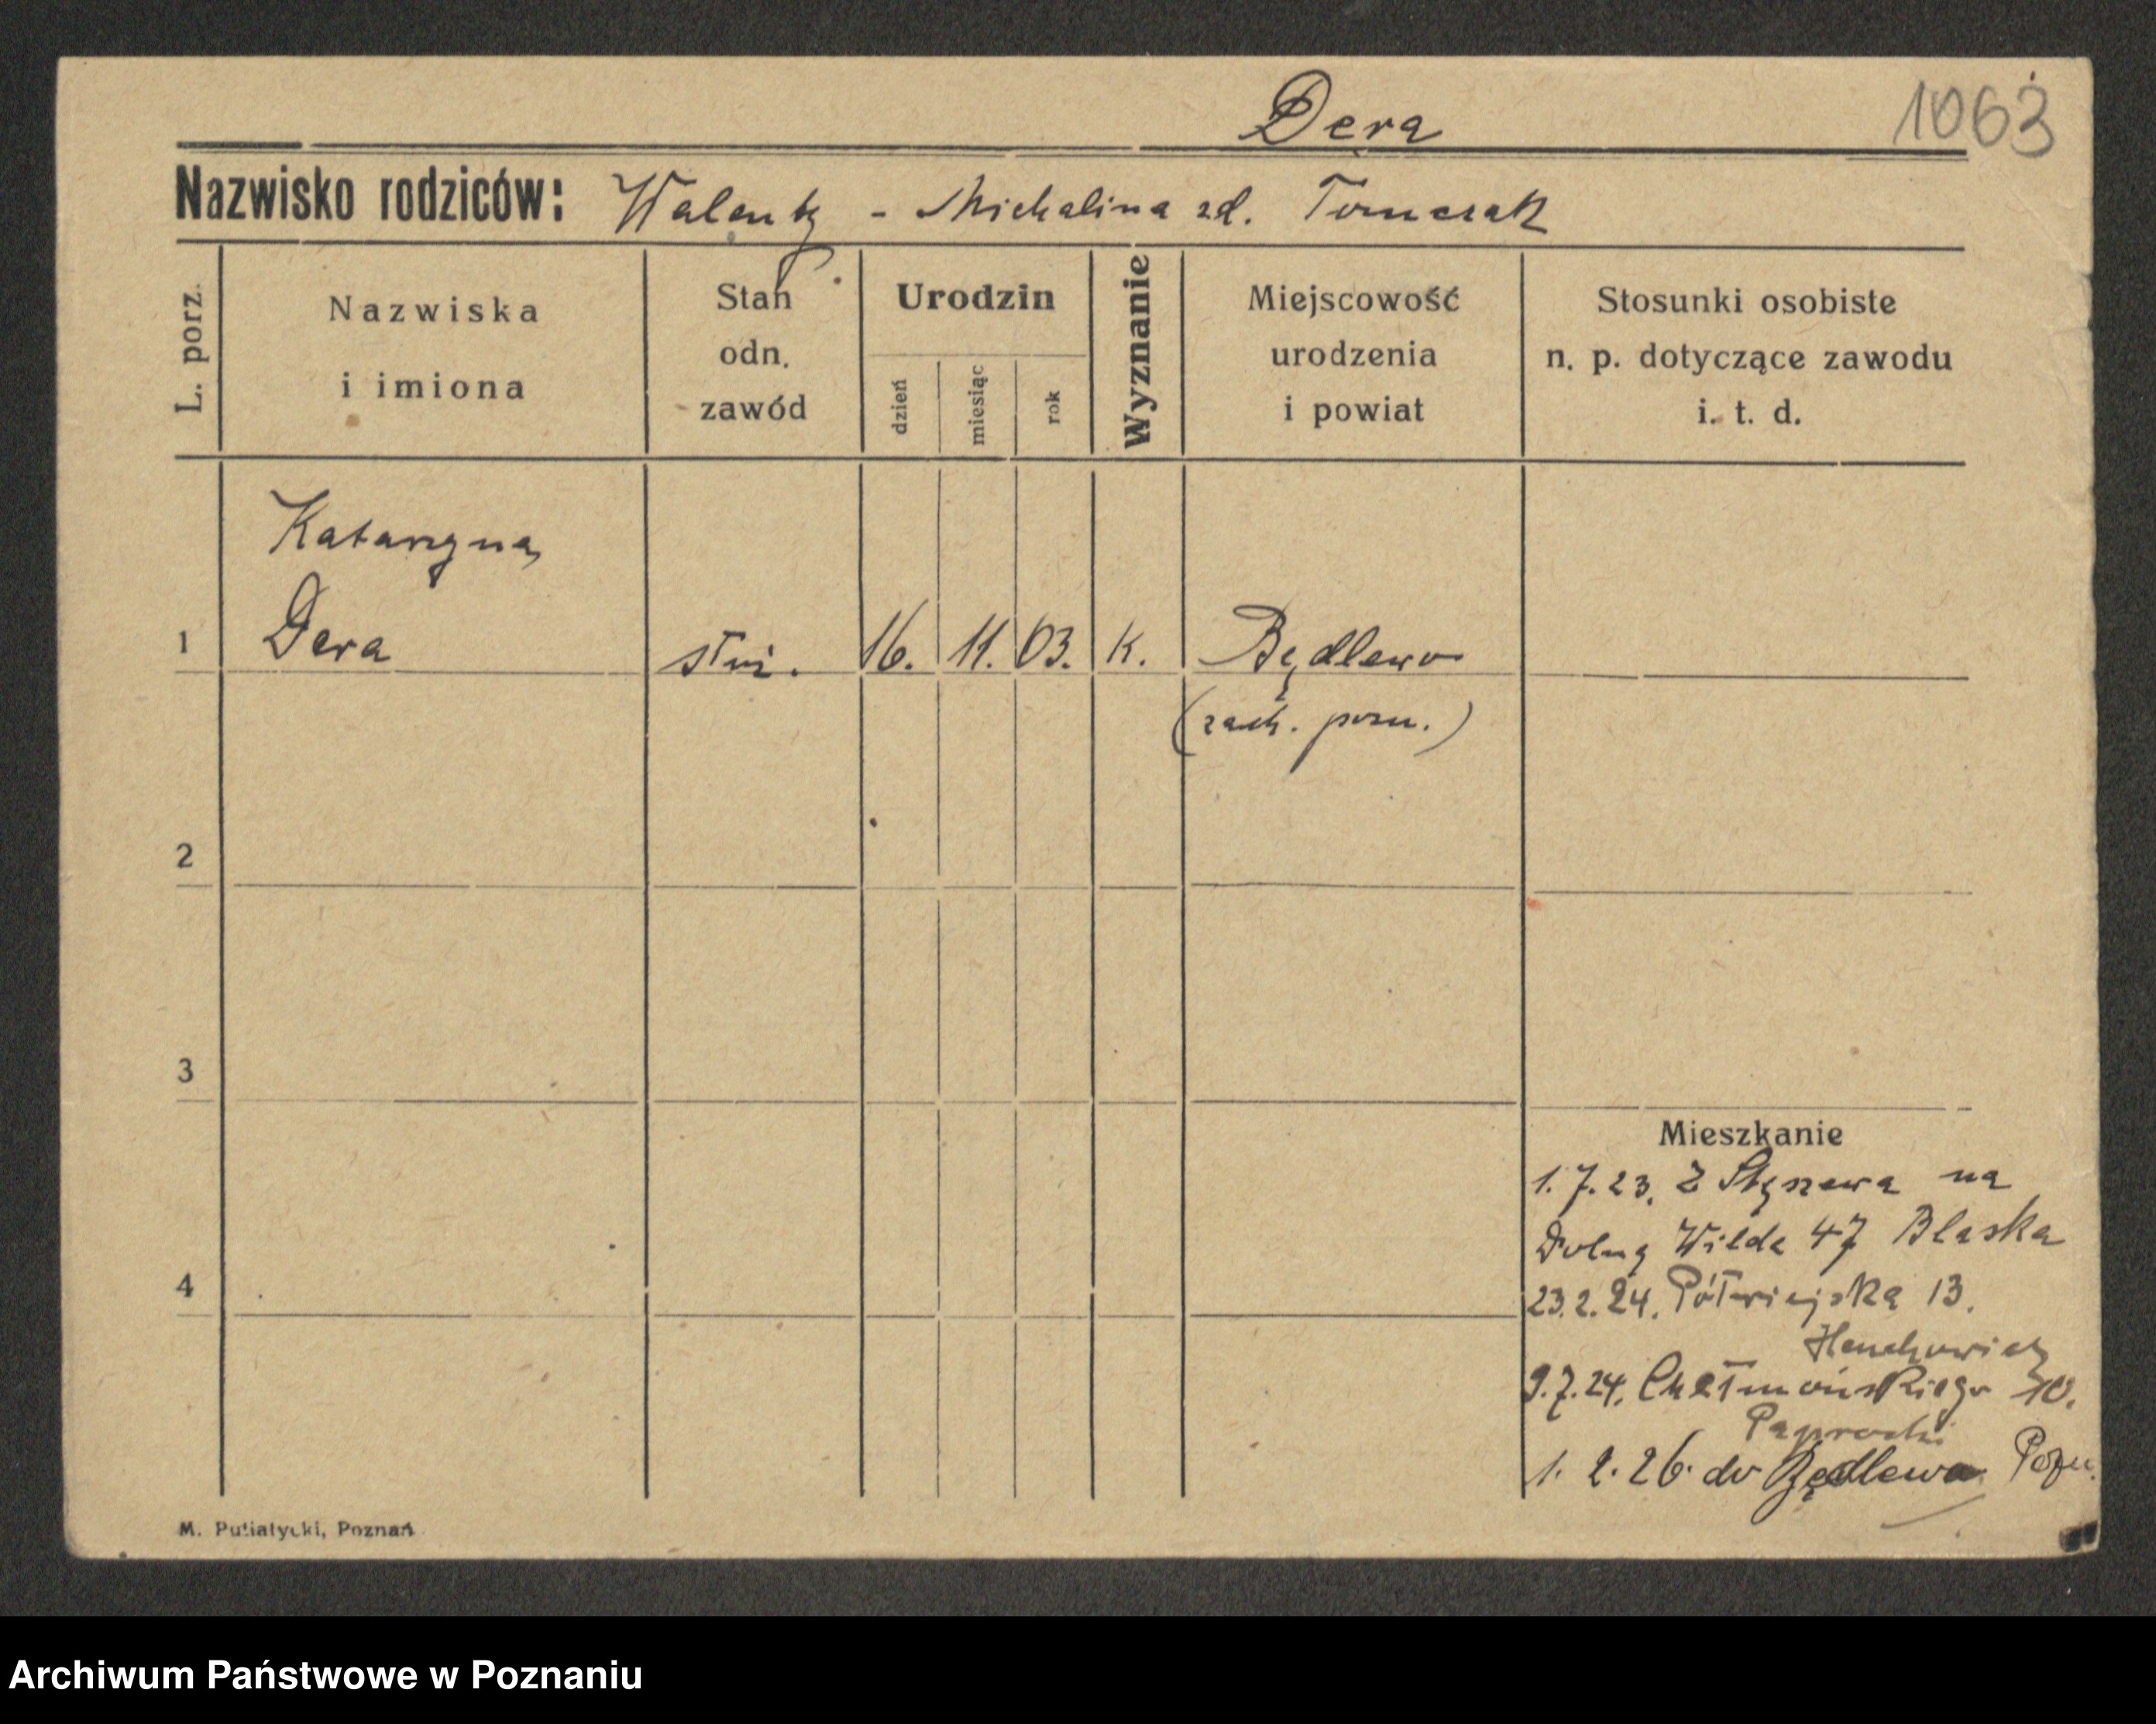 Dera
1063
Nazwisko rodziców: Walenty - Michalina zd. Tomczak
L. porz.
Nazwiska
i imiona
Stan
odn.
zawód
Urodzin
dzień
miesiąc
rok
Wyznanie
Miejscowość
urodzenia
i powiat
Stosunki osobiste
n. p. dotyczące zawodu
i. t. d.
Katarzyna
1 Dera służ. 16. 11. 03. K. Będlewo
(zach. pozn.)
2
3
Mieszkanie
1.7.23. Z Stęszewa na
Dolną Wildę 47 Blaska
4
23.2.24. Półwiejska 13.
9.7.24. Chełmońskiego 10.
Paprocki
1.2.26. do Będlewa Pozn.
M. Putiatycki, Poznań
Archiwum Państwowe w Poznaniu